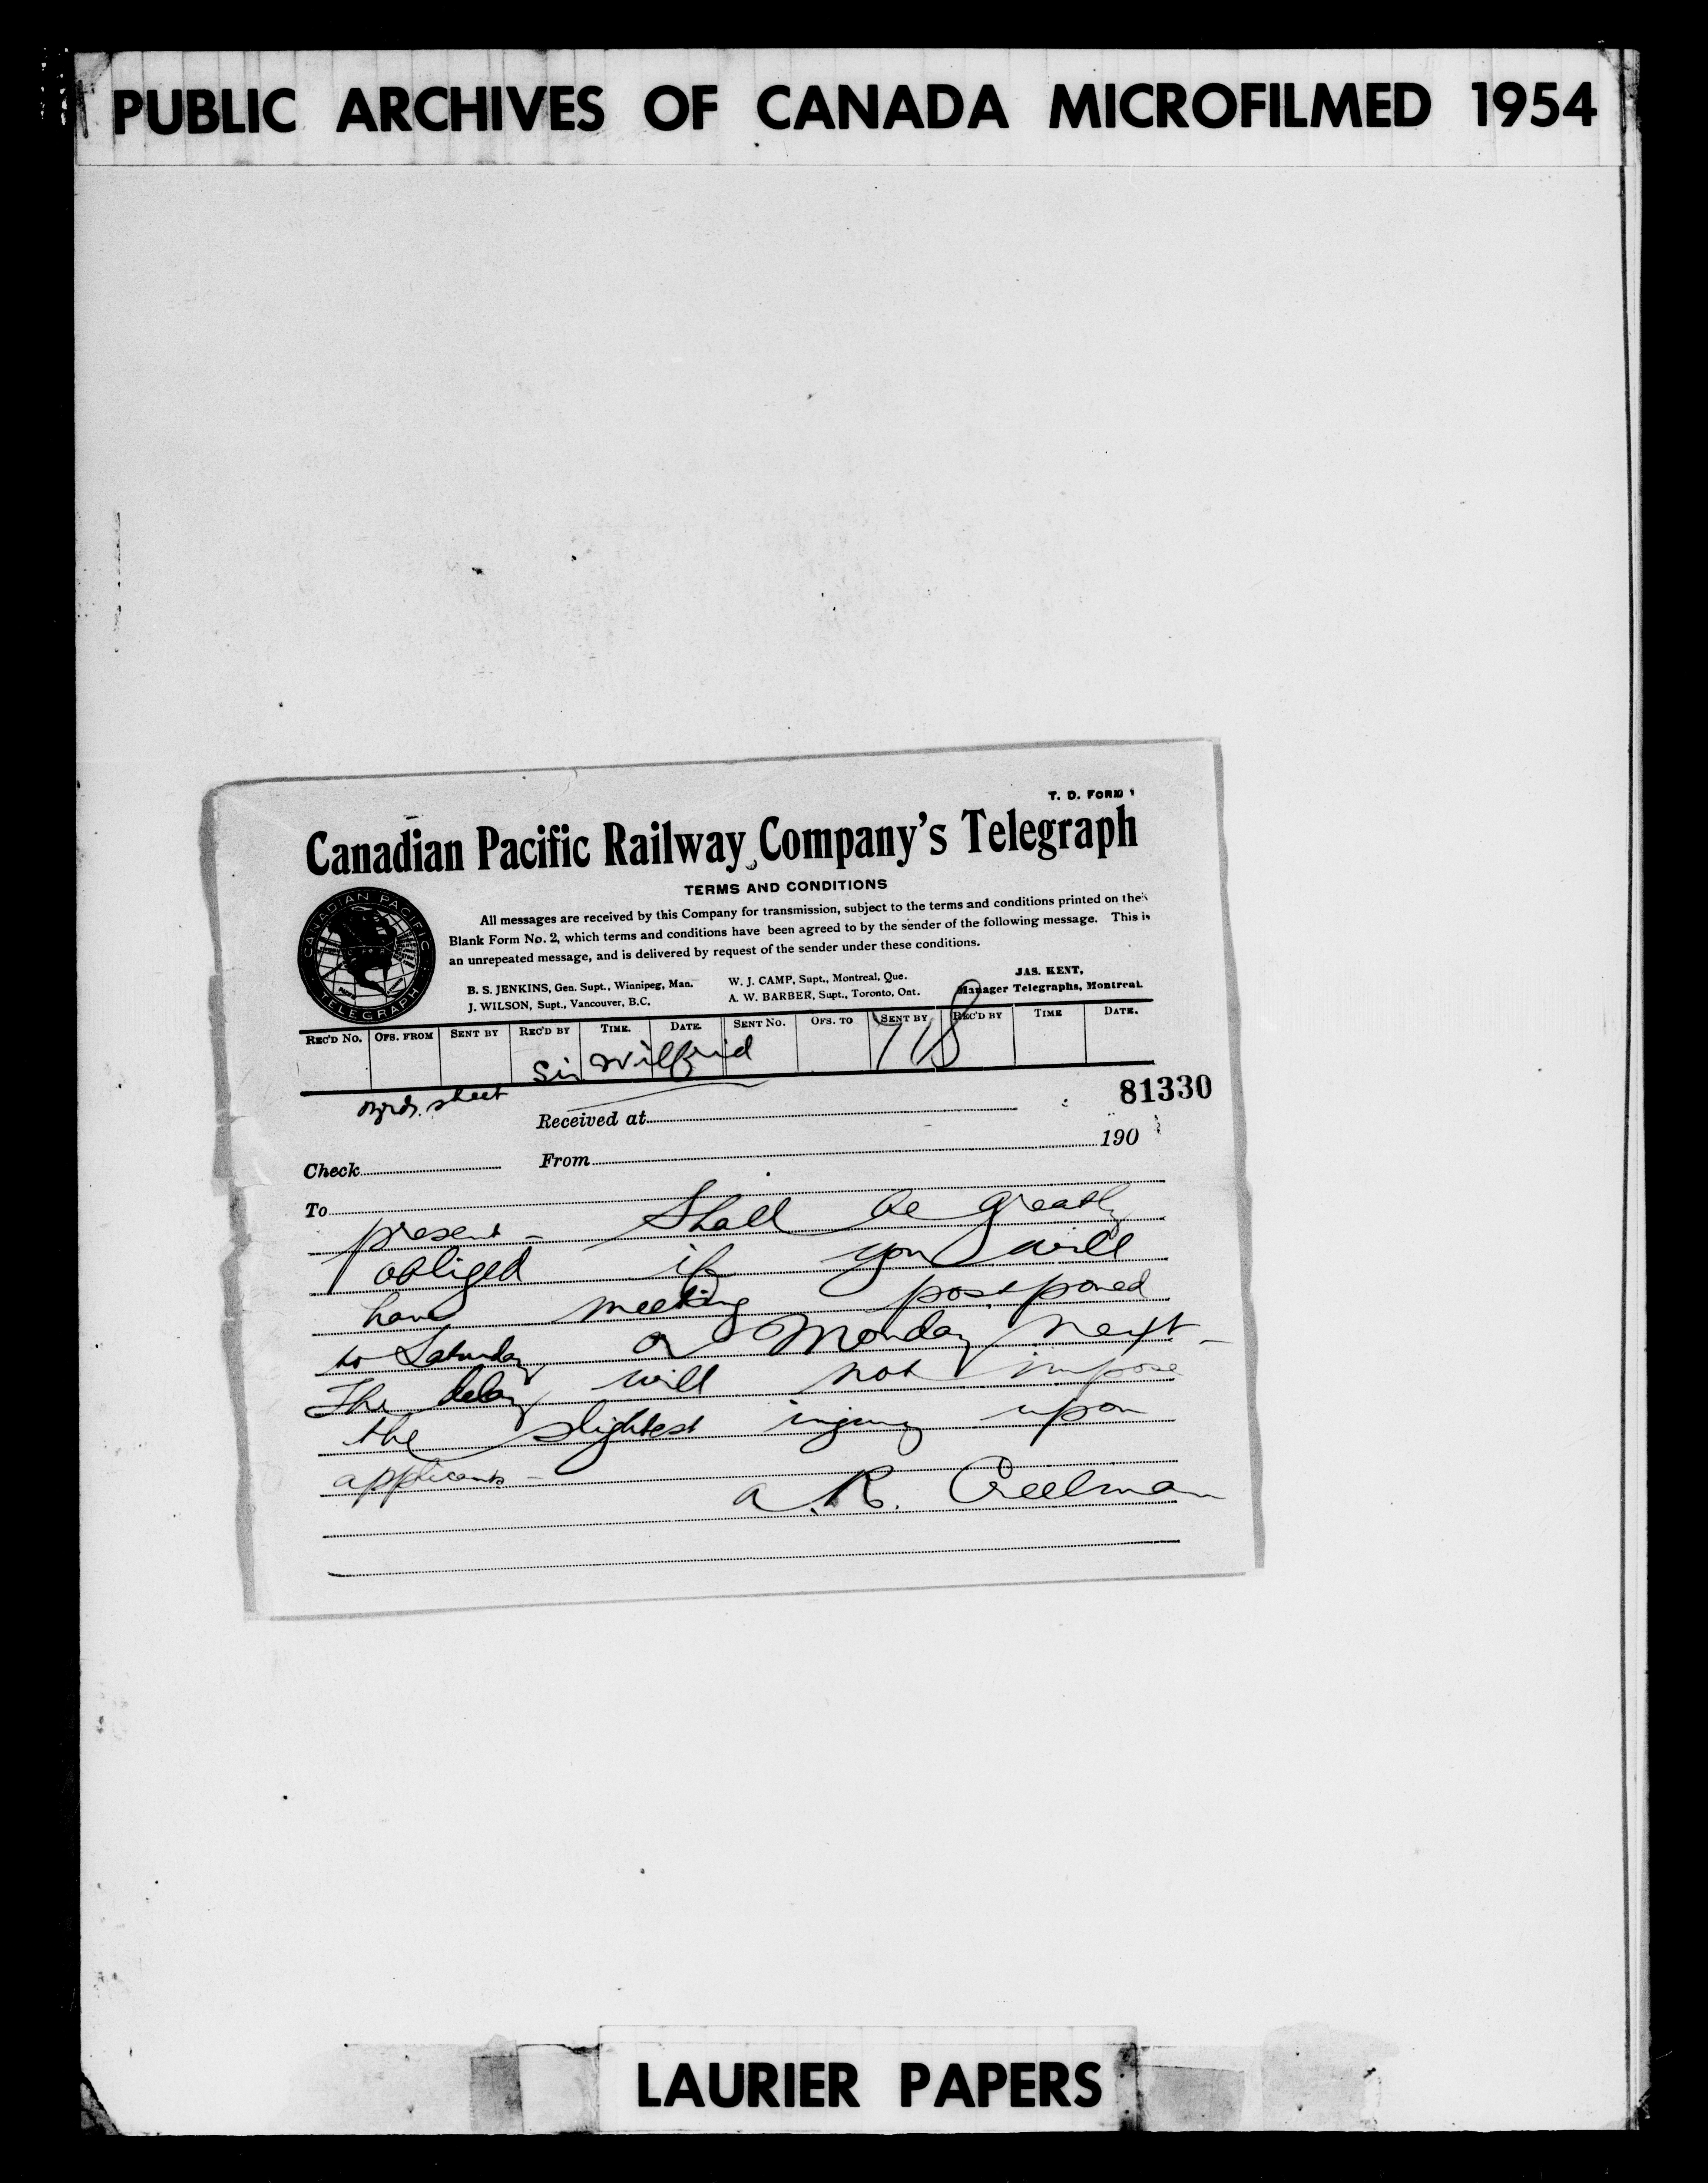 PUBLIC ARCHIVES OF CANADA MICROFILMED 1954
T. D. FORM 1
Canadian Pacific Railway Company's Telegraph
TERMS AND CONDITIONS
All messages are received by this Company for transmission, subject to the terms and conditions printed on their
Blank Form No. 2, which terms and conditions have been agreed to by the sender of the following message. This is
an unrepeated message, and is delivered by request of the sender under these conditions.
B. S. JENKINS, Gen. Supt., Winnipeg, Man. W. J. CAMP, Supt., Montreal, Que. JAS. KENT,
J. WILSON, Supt., Vancouver, B.C. A. W. BARBER, Supt., Toronto, Ont. Manager Telegraphs, Montreal.
CANADIAN PACIFIC
TELEGRAPH
REC'D NO. OFS. FROM SENT BY REC'D BY TIME. DATE. SENT NO. OFS. TO SENT BY REC'D BY TIME DATE.
Sir Wilfrid 718
sheet
81330
Received at
190
Check From
To
present – Shall be greatly
obliged if you will
have meeting postponed
to Saturday or Monday next –
The delay will not impose
the slightest injury upon
applicants –
A. R. Creelman
LAURIER PAPERS